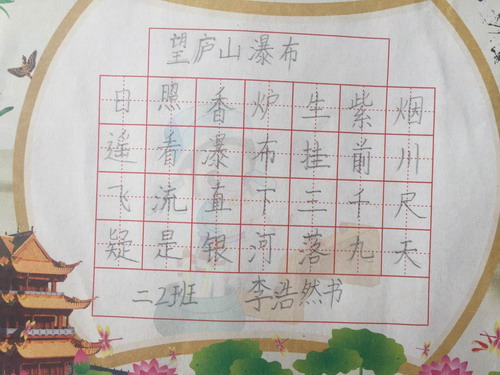 望庐山瀑布
日照香炉生紫烟
遥看瀑布挂前川
飞流直下三千尺
疑是银河落九天
二2班 李浩然书